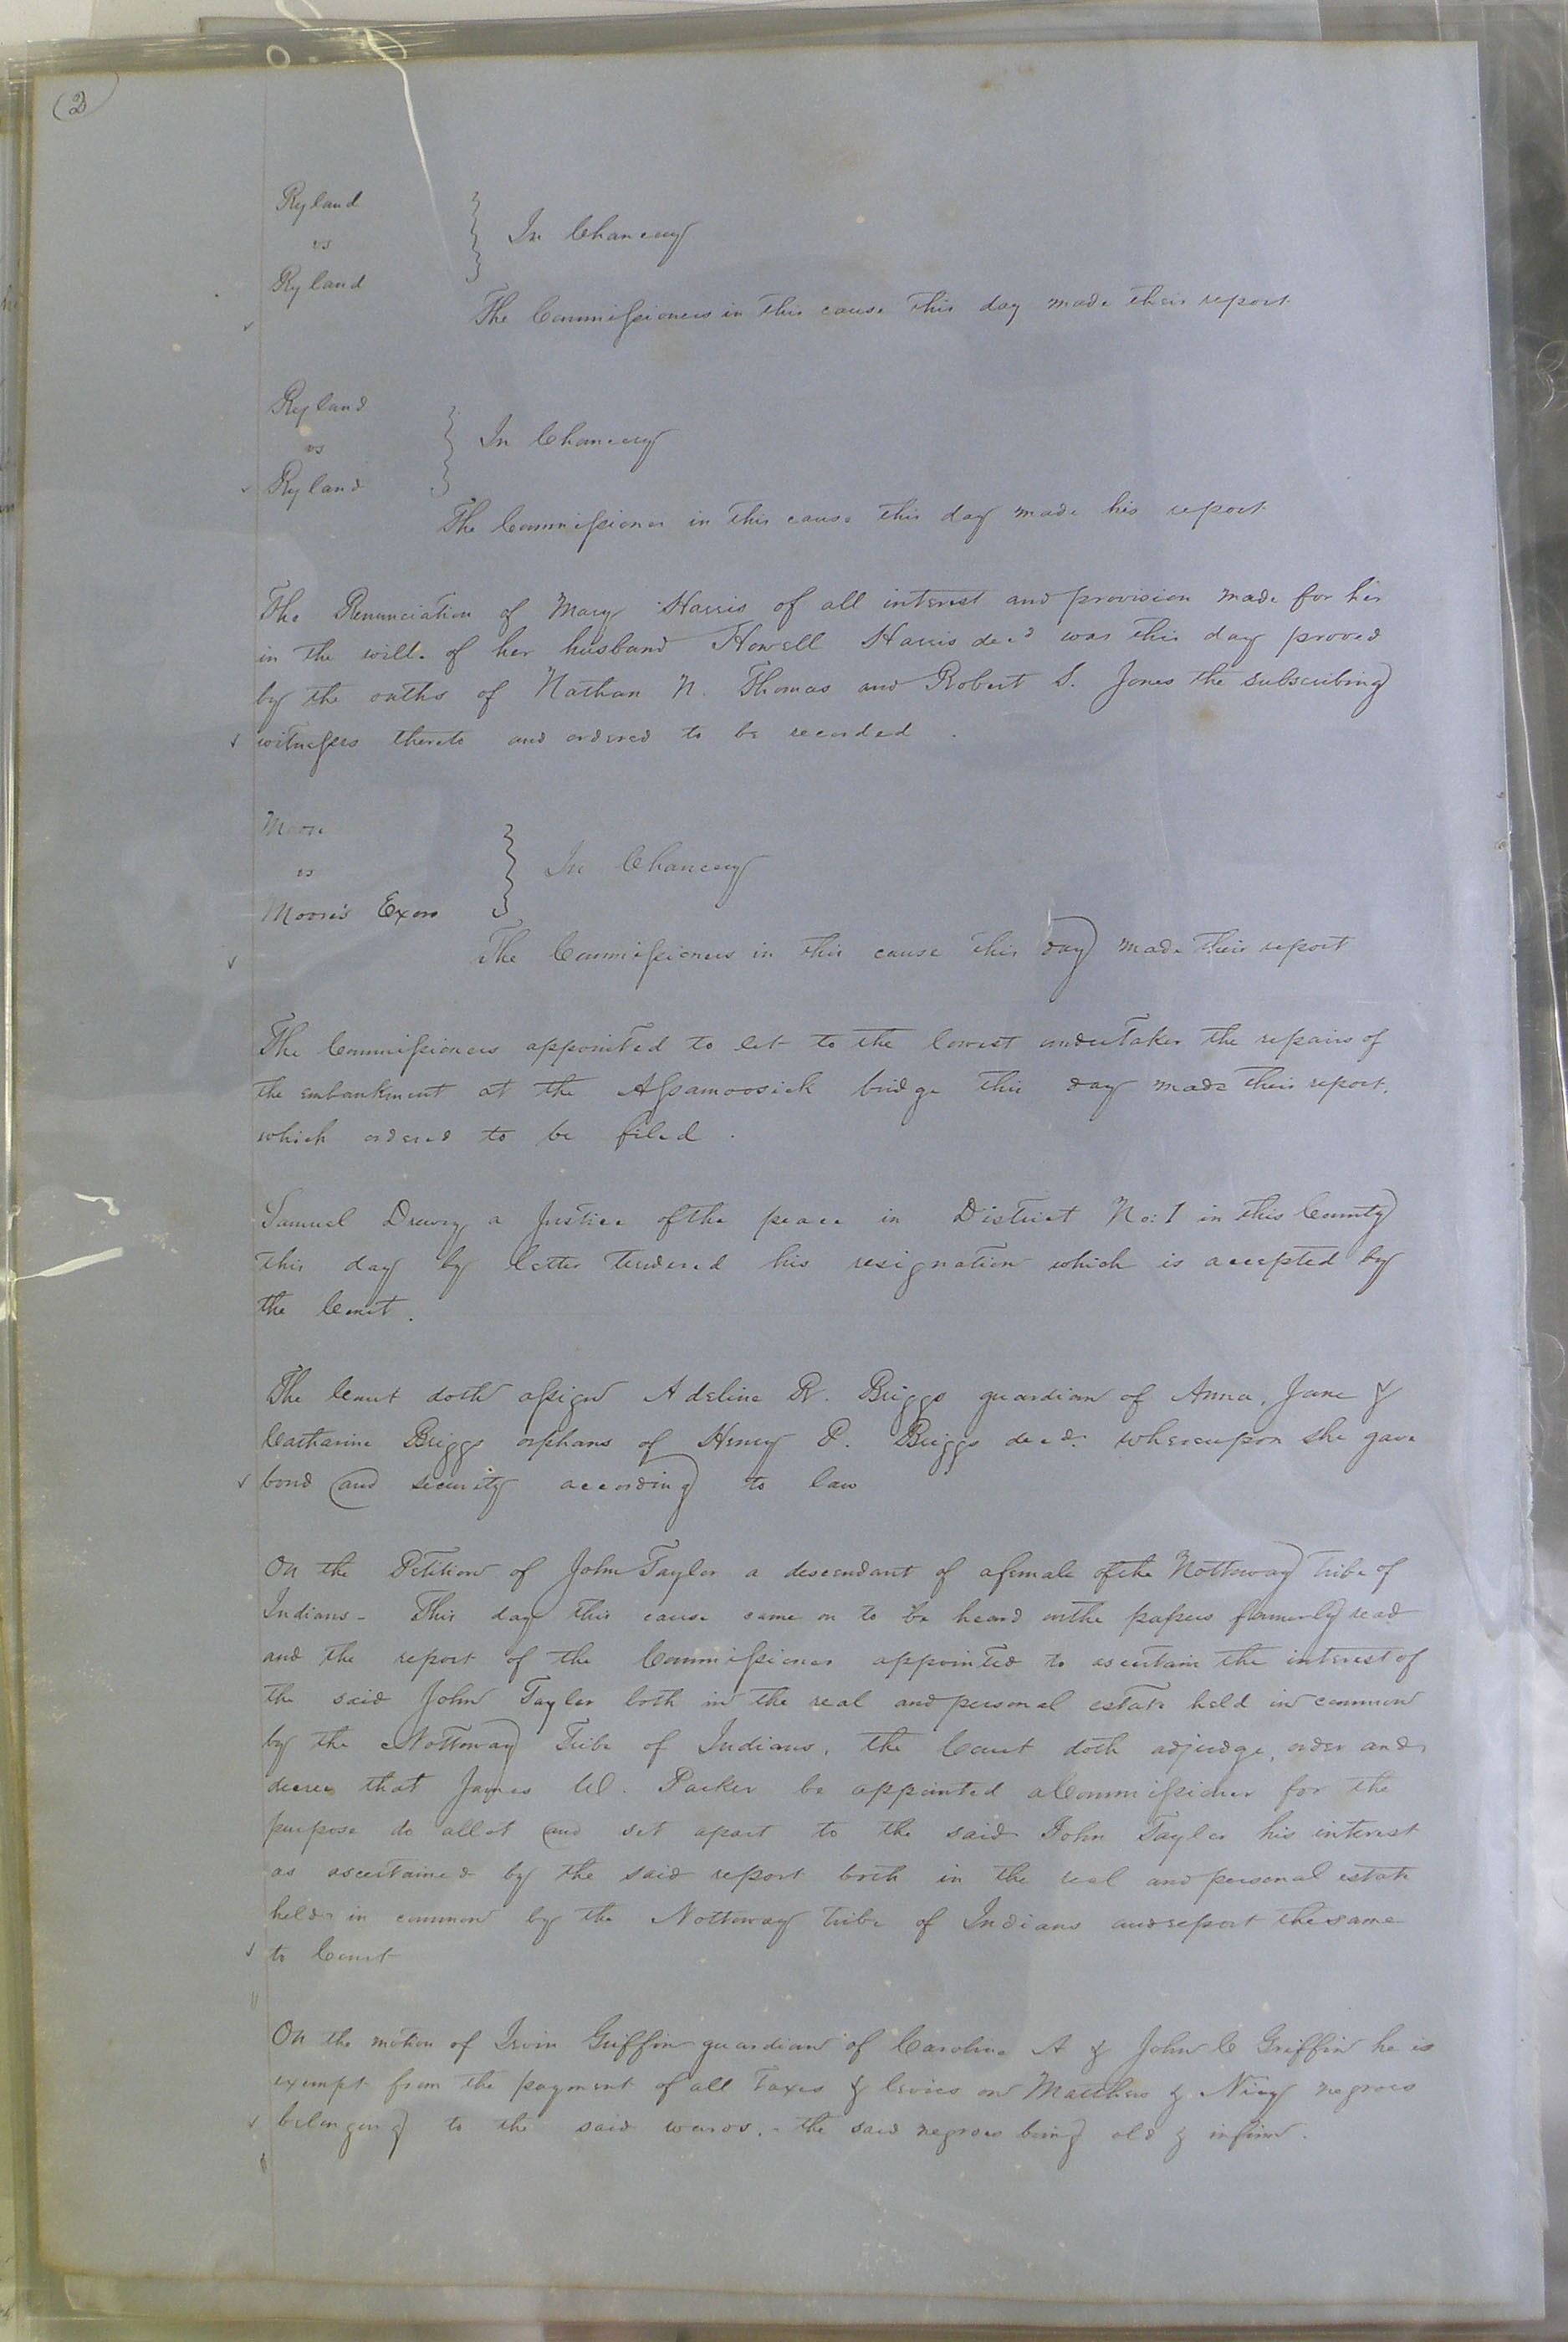 (2)
Ryland
vs
Ryland
In Chancery
The Commissioners in this cause this day made their report
Ryland
vs
Ryland
In Chancery
The Commissioner in this cause this day made his report
The Renunciation of Mary Harris of all interest and provision made for her
in the will of her husband Howell Harris decd was this day proved
by the oaths of Nathan N. Thomas and Robert S. Jones the subscribing
witnesses thereto and ordered to be recorded.
Moore
vs
Moore's Exors
In Chancery
The Commissioners in this cause this day made their report
The Commissioners appointed to let to the lowest undertaker the repairs of
the embankment at the Assamoosick bridge this day made their report,
which ordered to be filed.
Samuel Drewry a Justice of the peace in District No: 1 in this County
this day by letter tendered his resignation which is accepted by
the Court.
The Court doth assign Adeline R. Briggs guardian of Anna, Jane &
Catharine Briggs orphans of Henry P. Briggs decd. whereupon she gave
bond and security according to law
On the Petition of John Taylor a descendant of a female of the Nottoway tribe of
Indians - This day this cause came on to be heard on the papers formerly read
and the report of the Commissioner appointed to ascertain the interest of
the said John Taylor both in the real and personal estate held in common
by the Nottoway Tribe of Indians, the Court doth adjudge, order and
decree that James W. Parker be appointed a Commissioner for the
purpose do allot and set apart to the said John Taylor his interest
as ascertained by the said report both in the real and personal estate
held in common by the Nottoway tribe of Indians and report the same
to Court
On the motion of Irvin Griffin guardian of Caroline A & John C Griffin he is
exempt from the payment of all Taxes & levies on Matthew & Nicy negroes
belonging to the said wards, - the said negroes being old & infirm.